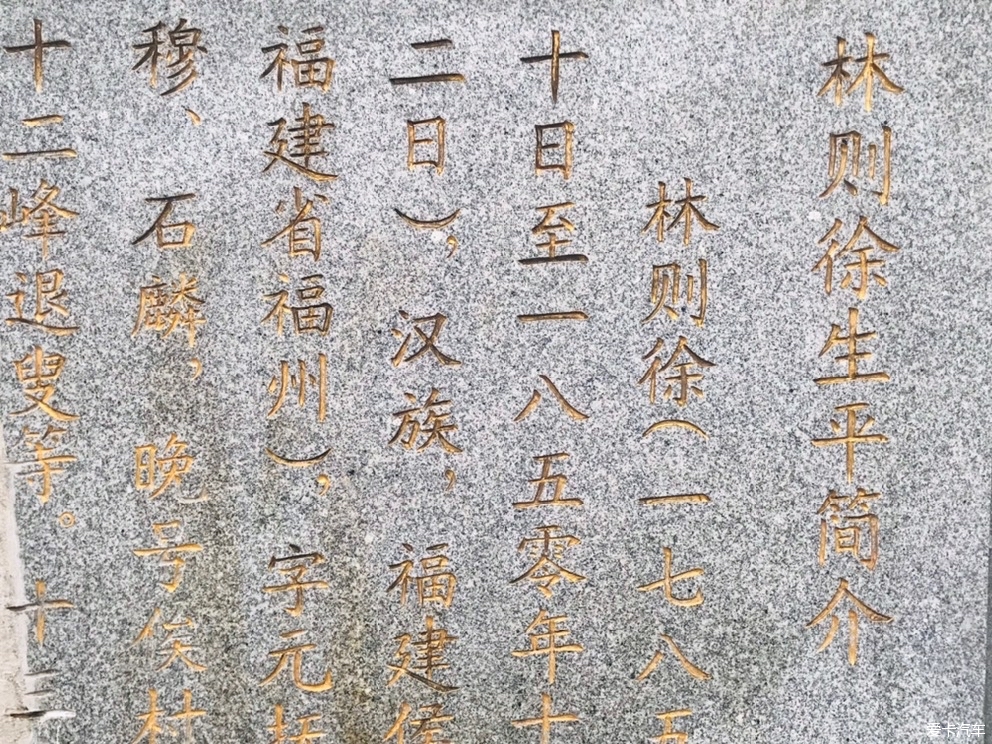 林则徐生平简介
林则徐（一七八五
十日至一八五零年十
二日），汉族，福建侯
福建省福州），字元抚
穆、石麟，晚号俟村
十二峰退叟等。十三
爱卡汽车